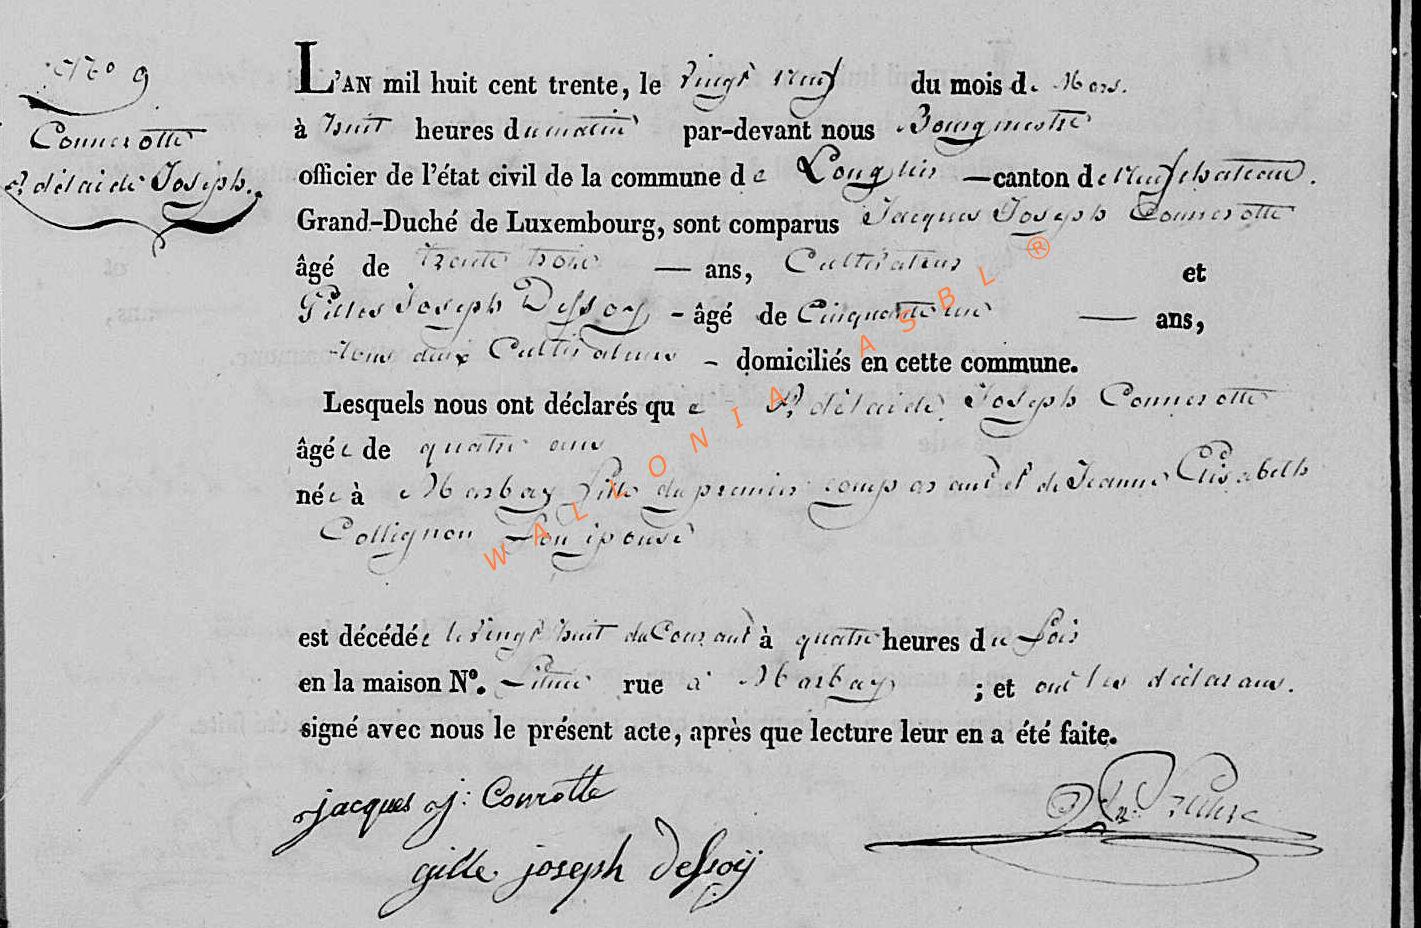 N° 9
Connerotte
Adélaïde Joseph.
L'AN mil huit cent trente, le vingt neuf du mois de Mars.
à huit heures du matin par-devant nous Bourgmestre
officier de l'état civil de la commune de Longlier — canton de Neufchateau.
Grand-Duché de Luxembourg, sont comparus Jacques Joseph Connerotte
âgé de trente trois — ans, Cultivateur et
Gilles Joseph Dessoy - âgé de Cinquante une — ans,
tous deux Cultivateurs - domiciliés en cette commune.
Lesquels nous ont déclarés que Adélaïde Joseph Connerotte
âgée de quatre ans
née à Marbay fille du premier comparant et de Jeanne Elisabeth
Collignon Son épouse
est décédée le vingt huit du Courant à quatre heures du Soir
en la maison N°. Située rue à Marbay ; et ont les déclarans.
signé avec nous le présent acte, après que lecture leur en a été faite.
jacques j: Conrotte
gille joseph dessoÿ
WALLONIA ASBL ®